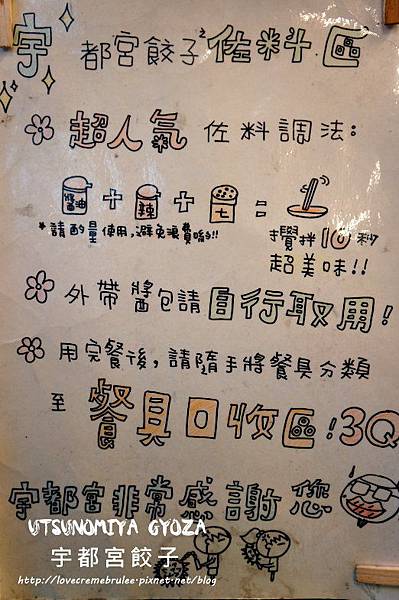 宇都宮餃子佐料區
超人氣佐料調法:
醬油 + 辣 + 七 =
*請酌量使用,避免浪費喲!!
攪拌10秒
超美味!!
外帶醬包請自行取用!
用完餐後,請隨手將餐具分類
至餐具回收區!3Q
宇都宮非常感謝您
UTSUNOMIYA GYOZA
宇都宮餃子
http://lovecremebrulee.pixnet.net/blog